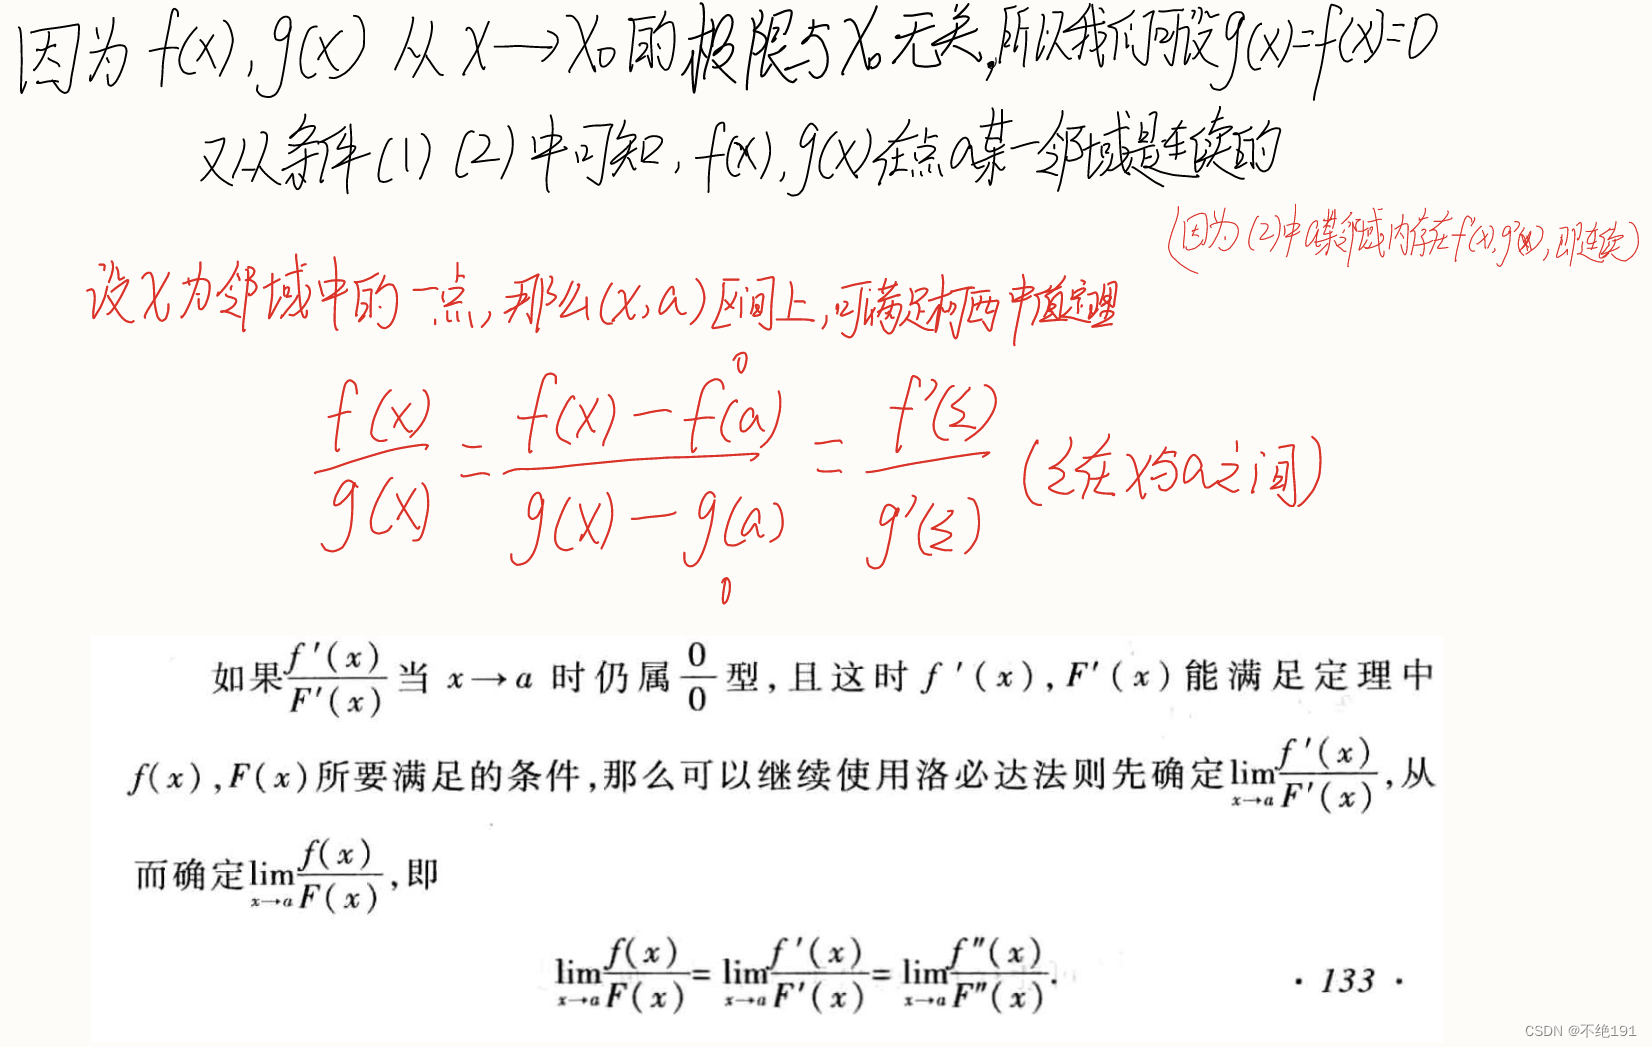 因为 f(x), g(x) 从 x→x₀的极限与x₀无关,所以我们可设g(x)=f(x)=0
又从条件(1)(2)中可知, f(x), g(x)在点a某一邻域是连续的
(因为(2)中a某邻域内存在f'(x), g'(x), 即连续)
设x为邻域中的一点, 那么(x, a)区间上, 可满足柯西中值定理
0
f(x)/g(x) = (f(x)-f(a))/(g(x)-g(a)) = f'(ξ)/g'(ξ) (ξ在x与a之间)
0
如果 f'(x)/F'(x) 当 x→a 时仍属 0/0 型,且这时 f'(x),F'(x)能满足定理中
f(x),F(x)所要满足的条件,那么可以继续使用洛必达法则先确定 lim x→a f'(x)/F'(x),从
而确定 lim x→a f(x)/F(x),即
lim x→a f(x)/F(x) = lim x→a f'(x)/F'(x) = lim x→a f″(x)/F″(x).
· 133 ·
CSDN @不绝191